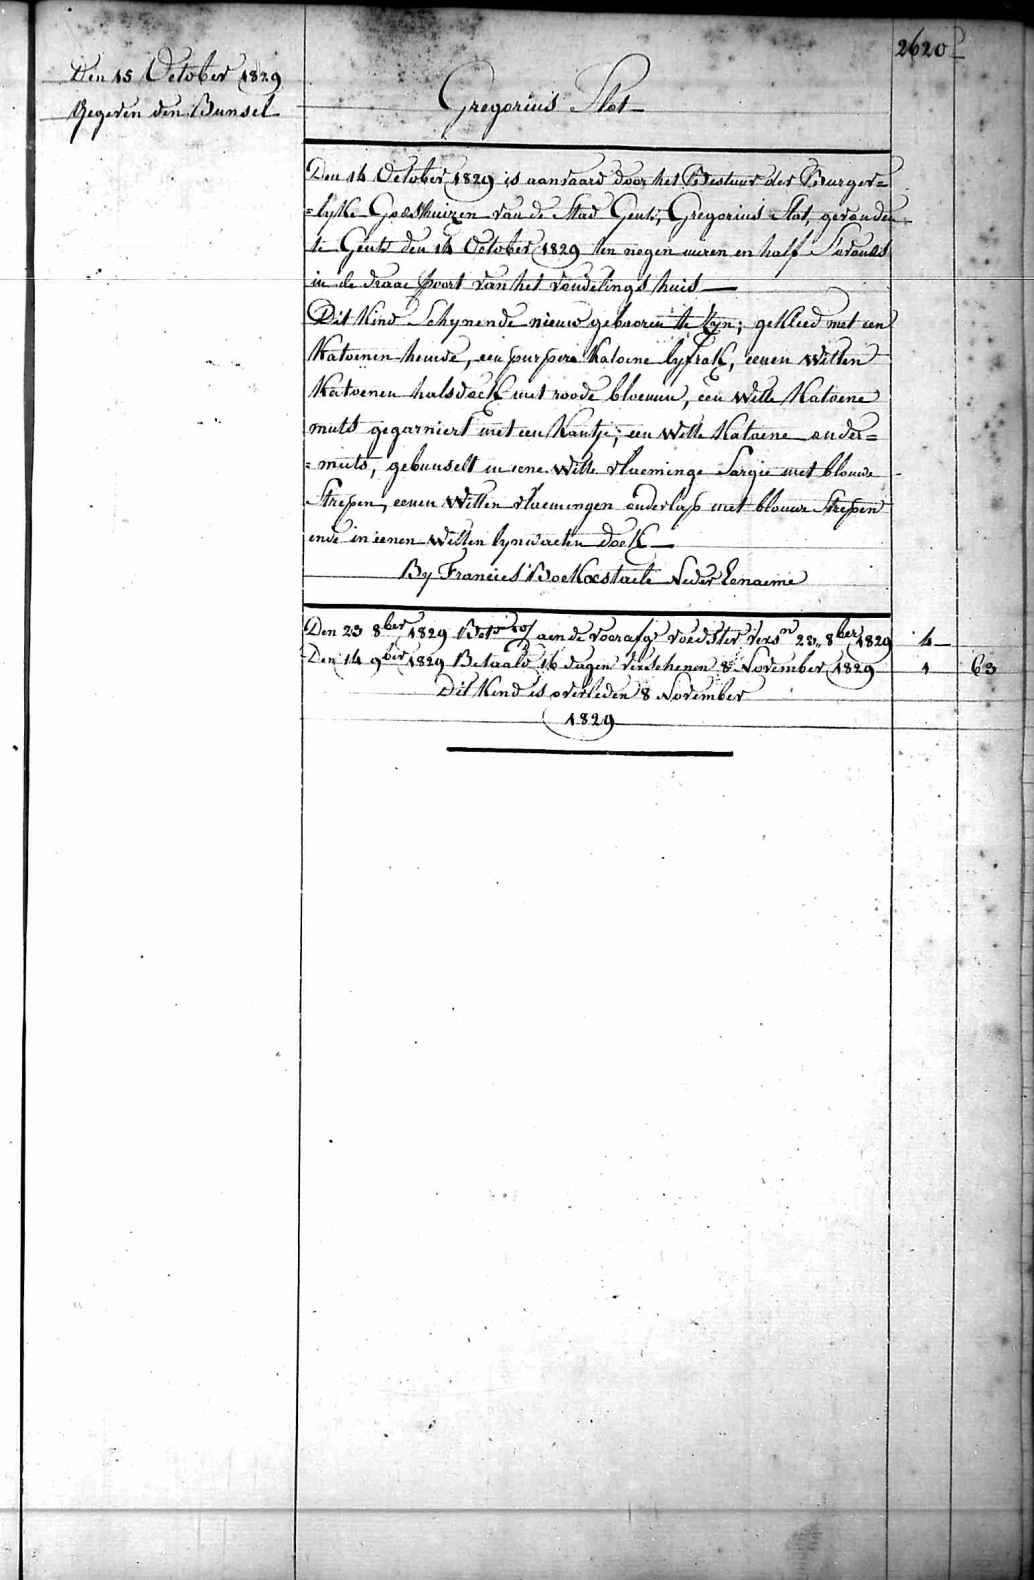 2620
Den 15 October 1829
Gegeven den Bunsel
Gregorius Slot
Den 14 October 1829 is aanvaard door het Bestuur der Burger=
=lyke Godshuizen van de Stad Gent, Gregorius Slot, gevonden
te Gent den 14 October 1829 ten negen uuren en half S'avonds
in de draae poort van het vondelings huis
Dit Kind Schynende nieuw gebooren te Zyn; gekleed met een
Katoenen hemde, een purpere Katoene lyfrok, eenen Witten
Katoenen halsdoek met roode bloemen, een Witte Katoene
muts gegarniert met een Kantje; een Witte Katoene onder=
=muts, gebunselt in eene Witte vlaeminge Sargie met blouwe
Strepen, eenen Witten vlaemingen onderlap met blouwe Strepen
ende in eenen Witten lynwaeten doek
By Francies Boekestaele Neder Eenaeme
Den 23 8ber 1829 aen de voorafge voedster versn 23,, 8ber 1829 4
Den 14 9ber 1829 Betaald 16 dagen verschenen 8 November 1829 1 63
Dit Kind is overleden 8 November
1829